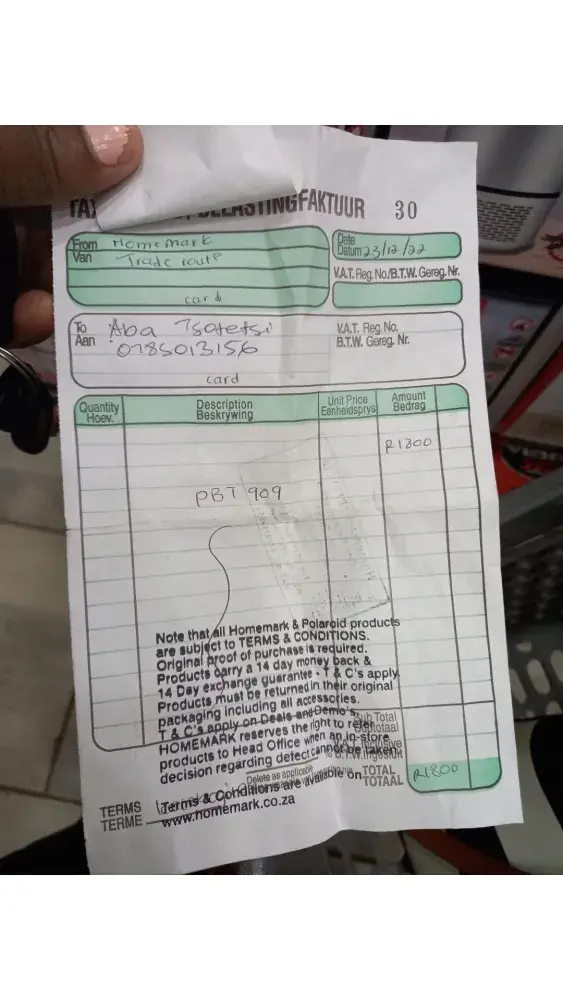 TAX BELASTINGFAKTUUR 30
From Homemark
Van Trade route
card
Date
Datum 23/12/22
V.A.T. Reg. No./B.T.W. Gereg. Nr.
To Aba Tsatetsi
Aan 0785013156
card
V.A.T. Reg. No.
B.T.W. Gereg. Nr.
Quantity Description Unit Price Amount
Hoev. Beskrywing Eenheidsprys Bedrag
R1800
PBT 909
Note that all Homemark & Polaroid products
are subject to TERMS & CONDITIONS.
Original proof of purchase is required.
Products carry a 14 day money back &
14 Day exchange guarantee - T & C's apply.
Products must be returned in their original
packaging including all accessories.
T & C's apply on Deals and Demo's.
HOMEMARK reserves the right to refer
products to Head Office when an in-store
decision regarding defect cannot be taken.
Sub Total
Subtotaal
Delete as applicable
TOTAL R1800
TOTAAL
TERMS
TERME
Terms & Conditions are available on
www.homemark.co.za